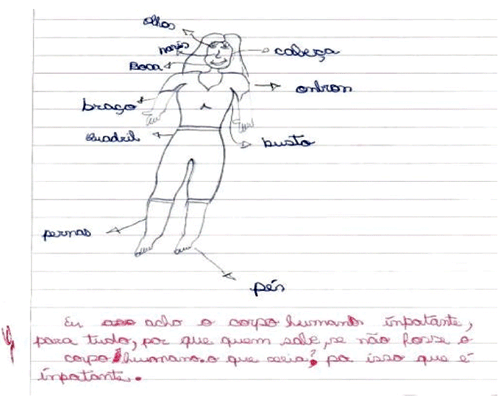 olhos
nariz
cabeça
Boca
ombron
braço
Quadril
busto
pernas
pés
Eu acho o corpo humano inpotante,
para tudo, por que quem sabe, se não fosse o
corpo humano. o que seria? po isso que é
inpotante.